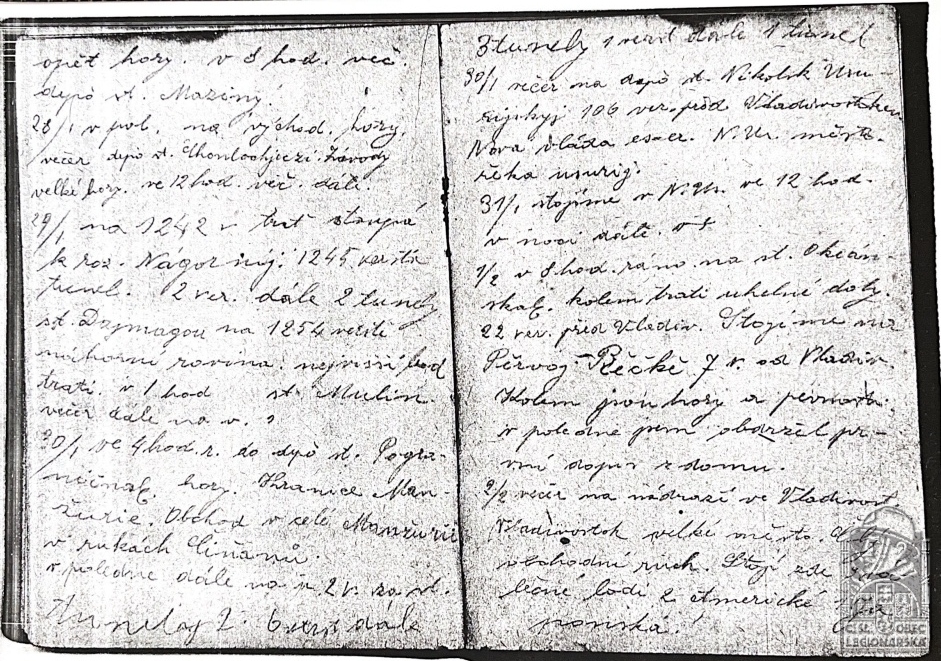 opět hory. v 8 hod. več.
depô st. Maziny.
28/1 v pol. na východ. hory.
večer depô st. závody
velké hory. ve 12 hod. več. dále.
29/1 na 1242 v trať stoupá
k roz. Nagornij. 1245 versta
tunel. 2 ver. dále 2 tunely
st. Dajmagou na 1254 versti
náhorní rovina. nejvišší bod
trati. v 1 hod st. Mulin.
večer dále na v.
30/1 ve 4 hod. r. do depô st. Pogra-
ničnaj. hory. Hranice Man-
žurie. Obchod v celé Manžurii
v rukách Číňanů.
v poledne dále na v 2 v. za st.
tunelaj 2. 6 verst dále
3 tunely 1 verst dále 1 tunel
30/1 večer na depô st. Nikolsk Usu-
rijskyj 106 ver. před Vladivostokem
Nova vláda es-er. N. Us. měst.
řeka usurij.
31/1 stojíme v N. Us. ve 12 hod.
v noci dále.
1/2 v 8 hod. ráno na st. Okeán-
skaj. kolem trati uhelné doly.
22 ver. před Vladiv. Stojíme na
Pěrvoj-Rěčkě 7 v. od Vladiv.
Kolem jsou hory a pevnosti.
v poledne jsem obdržel pr-
vní dopis z domu.
2/2 večer na nádraží ve Vladivost.
Vladivostok velké město.
obchodní ruch. Stojí zde vá-
lečné lodi 2 americké
ponská.
ČSL. OBEC
LEGIONÁŘSKÁ